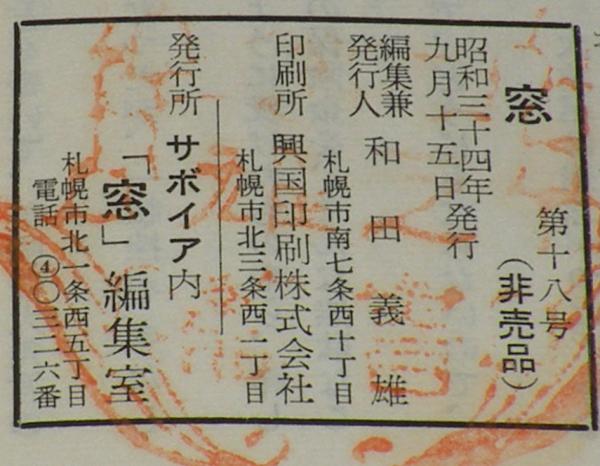 窓 第十八号
（非売品）
昭和三十四年
九月十五日発行
編集兼
発行人 和田義雄
札幌市南七条西十丁目
印刷所 興国印刷株式会社
札幌市北三条西一丁目
発行所 サボイア内
「窓」編集室
札幌市北一条西五丁目
電話 ④〇三二六番